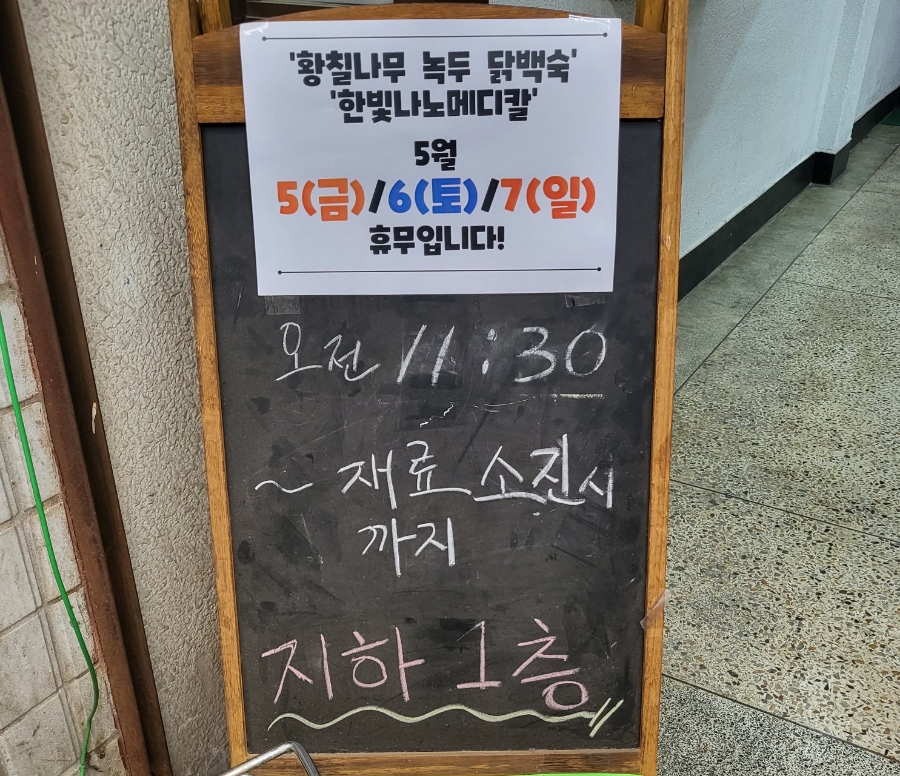 '황칠나무 녹두 닭백숙'
'한빛나노메디칼'
5월
5(금)/6(토)/7(일)
휴무입니다!
오전 11:30
~ 재료 소진시
까지
지하 1층